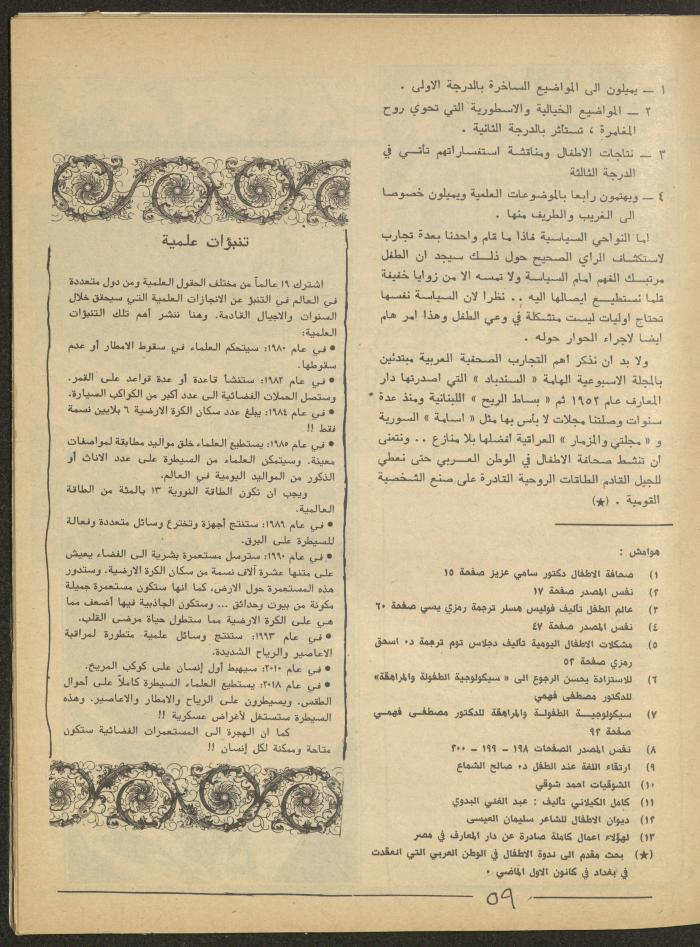 ١ ــ يميلون الى المواضيع الساخرة بالدرجة الاولى .
٢ ــ المواضيع الخيالية والاسطورية التي تحوي روح
المغامرة ، تستأثر بالدرجة الثانية .
٣ ــ نتاجات الاطفال ومناقشة استفساراتهم تأتــي في
الدرجة الثالثة
٤ ــ ويهتمون رابعا بالموضوعات العلمية ويميلون خصوصا
الى الغريب والطريف منها .
اما النواحي السياسية فاذا ما قام واحدنا بعدة تجارب
لاستكشاف الراي الصحيح حول ذلــك سيجد ان الطفل
مرتبــك الفهم امام السياسة ولا تمسه الا من زوايا خفيفة
قلما نستطيــع ايصالها اليه . . نظرا لان السياسة نفسها
تحتاج اوليات ليست متشكلة في وعي الطفل وهذا امر هام
ايضا لاجراء الحوار حوله .
ولا بد ان نذكر اهم التجارب الصحفية العربية مبتدئين
بالمجلة الاسبوعية الهامة « السندباد » التي اصدرتها دار
المعارف عام ١٩٥٢ ثم « بساط الريح » اللبنانية ومنذ عدة
سنوات وصلتنا مجلات لا بأس بها مثل « اسامة » السورية
و « مجلتي والمزمار » العراقية افضلها بلا منازع . . ونتمنى
أن تنشط صحافة الاطفال في الوطن العــربي حتى نعطي
للجيل القادم الطاقات الروحية القادرة على صنع الشخصية
القومية . (★)
هوامش :
١) صحافة الاطفال دكتور سامي عزيز صفحة ١٥
٢) نفس المصدر صفحة ١٧
٣) عالم الطفل تأليف فوليس هسلر ترجمة رمزي يسي صفحة ٦٠
٤) نفس المصدر صفحة ٤٧
٥) مشكلات الاطفال اليومية تأليف دجلاس توم ترجمة د. اسحق
رمزي صفحة ٥٢
٦) للاستزادة يحسن الرجوع الى « سيكولوجية الطفولة والمراهقة»
للدكتور مصطفى فهمي
٧) سيكولوجيــة الطفولــة والمراهقة للدكتور مصطفــى فهمــي
صفحة ٩٢
٨) نفس المصدر الصفحات ١٩٨ ــ ١٩٩ ــ ٢٠٠
٩) ارتقاء اللغة عند الطفل د. صالح الشماع
١٠) الشوقيات احمد شوقي
١١) كامل الكيلاني تأليف : عبد الغني البدوي
١٢) ديوان الاطفال للشاعر سليمان العيسى
١٣) لهؤلاء اعمال كاملة صادرة عن دار المعارف في مصر
(★) بحث مقدم الى ندوة الاطفال في الوطن العربي التي انعقدت
في بغداد في كانون الاول الماضي .
تنبؤات علمية
اشترك ١٩ عالماً من مختلف الحقول العلمية ومن دول متعددة
في العالم في التنبؤ عن الانجازات العلمية التي سيحقق خلال
السنوات والاجيال القادمة. وهنا ننشر أهم تلك التنبؤات
العلمية:
● في عام ١٩٨٠: سيتحكم العلماء في سقوط الامطار أو عدم
سقوطها.
● في عام ١٩٨٢: ستنشأ قاعدة أو عدة قواعد على القمر.
وستصل الحملات الفضائية الى عدد أكبر من الكواكب السيارة.
● في عام ١٩٨٤: يبلغ عدد سكان الكرة الارضية ٦ بلايين نسمة
فقط !!
● في عام ١٩٨٥: يستطيع العلماء خلق مواليد مطابقة لمواصفات
معينة. وسيتمكن العلماء من السيطرة على عدد الاناث أو
الذكور من المواليد اليومية في العالم.
ويجب ان تكون الطاقة النووية ١٣ بالمئة من الطاقة
العالمية.
● في عام ١٩٨٦: ستنتج أجهزة وتخترع وسائل متعددة وفعالة
للسيطرة على البرق.
● في عام ١٩٩٠: سترسل مستعمرة بشرية الى الفضاء يعيش
على متنها عشرة آلاف نسمة من سكان الكرة الارضية. وستدور
هذه المستعمرة حول الارض، كما انها ستكون مستعمرة جميلة
مكونة من بيوت وحدائق ... وستكون الجاذبية فيها أضعف مما
هي على الكرة الارضية مما ستطول حياة مرضى القلب.
● في عام ١٩٩٣: ستنتج وسائل علمية متطورة لمراقبة
الاعاصير والرياح الشديدة.
● في عام ٢٠١٠: سيهبط أول إنسان على كوكب المريخ.
● في عام ٢٠١٨: يستطيع العلماء السيطرة كاملاً على أحوال
الطقس. ويسيطرون على الرياح والامطار والاعاصير. وهذه
السيطرة ستستغل لأغراض عسكرية !!
كما ان الهجرة الى المستعمرات الفضائية ستكون
متاحة وممكنة لكل إنسان !!
٥٩